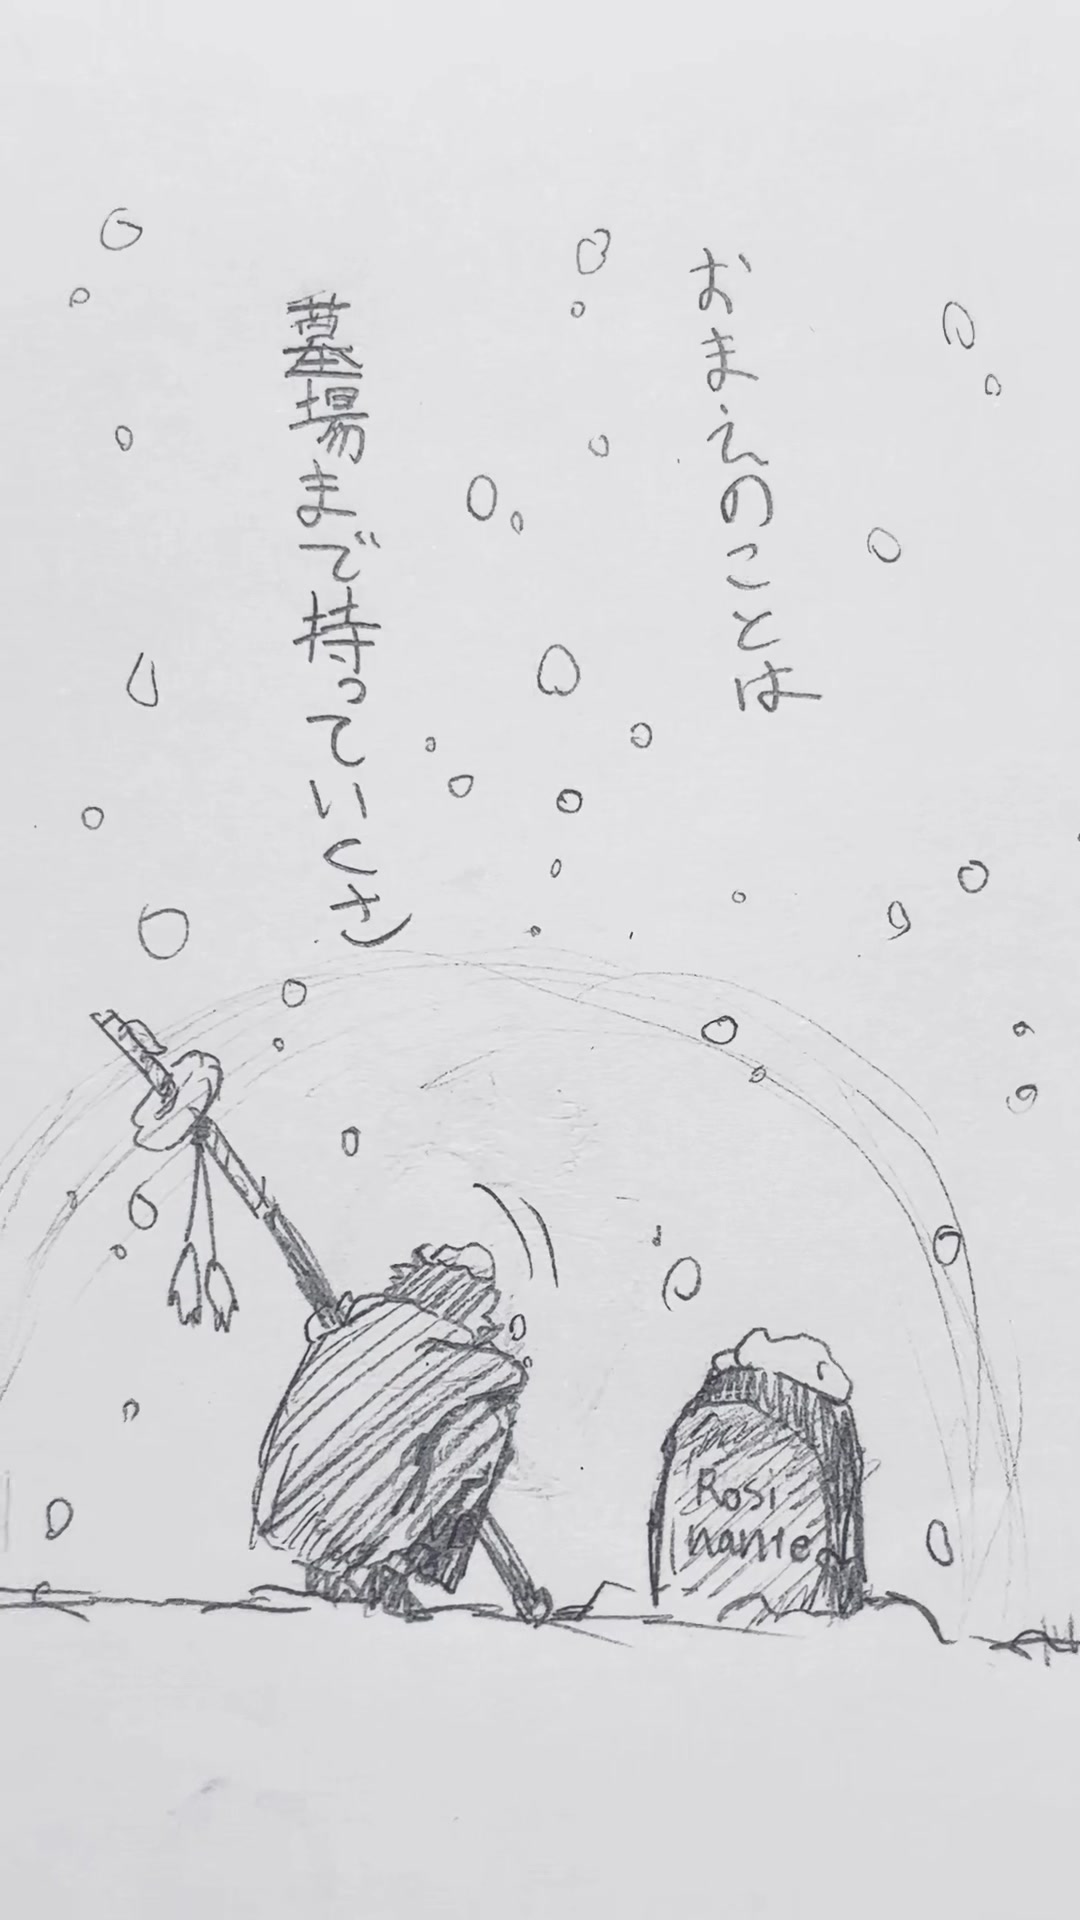 おまえのことは
墓場まで持っていくさ)
Rosi
nante